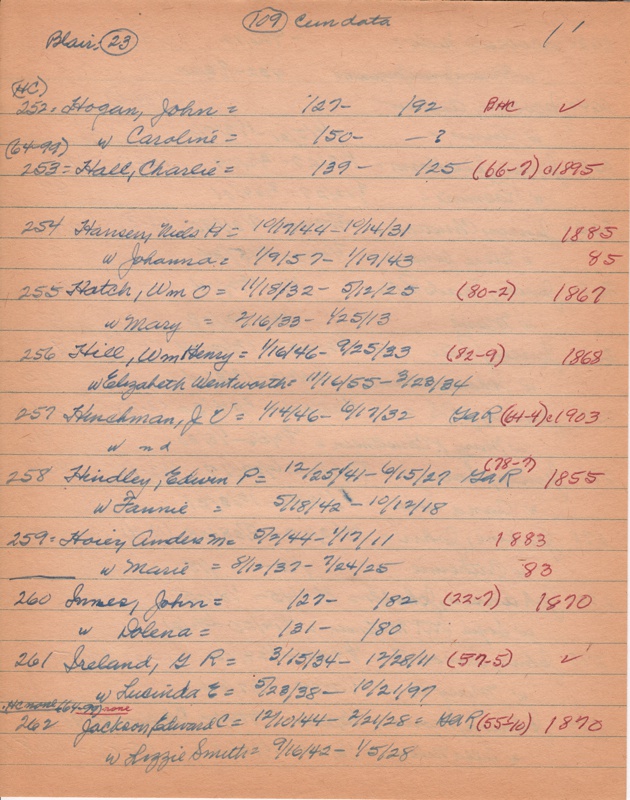 109 Cem data
Blair: 23
11
(HC)
252 = Hogan, John = 127- 192 BHC ✓
w Caroline = 150- -?
(64-99)
253 = Hall, Charlie = 139- 125 (66-7) 1895
254 Hansen, Niels H = 10/17/44-10/14/31 1885
w Johanna = 1/9/57- 1/19/43 85
255 Hatch, Wm O = 11/15/32- 5/12/25 (80-2) 1867
w Mary = 2/16/33- 1/25/13
256 Hill, Wm Henry = 1/16/46- 9/25/33 (82-9) 1868
w Elizabeth Wentworth = 11/16/55-3/23/34
257 Henchman, J V = 1/14/46- 6/17/32 GaR (61-4) c1903
w nd
258 Hindley, Edwin P = 12/25/41- 6/15/27 GaR (78-7) 1855
w Fannie = 5/18/42- 10/12/18
259 = Hoier, Anders M = 5/2/44- 1/17/11 1883
w Marie = 8/12/37- 7/24/25 83
260 Innes, John = 127- 182 (22-7) 1870
w Dolena = 131- 180
261 Ireland, G R = 3/15/34- 12/28/11 (57-5) ✓
w Lucinda E = 5/23/38- 10/21/97
HC none (64-99) none
262 Jackson, Edward C = 12/10/44- 2/21/28 = GaR (55-10) 1870
w Lizzie Smith = 9/16/42- 1/5/28